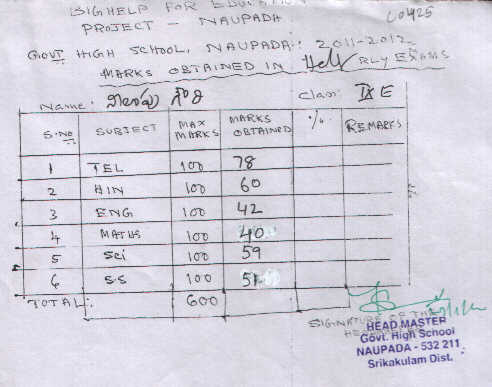 BIGHELP FOR EDUCATION
PROJECT - NAUPADA
U0425
GOVT HIGH SCHOOL, NAUPADA: 2011-2012
MARKS OBTAINED IN RLY EXAMS
Name: Class: IX E
S.No SUBJECT MAX MARKS MARKS OBTAINED % REMARKS
1 TEL 100 78
2 HIN 100 60
3 ENG 100 42
4 MATHS 100 40
5 Sci 100 59
6 S.S 100 51
TOTAL: 600
SIGNATURE OF THE
HEAD MASTER
Govt. High School
NAUPADA - 532 211
Srikakulam Dist.